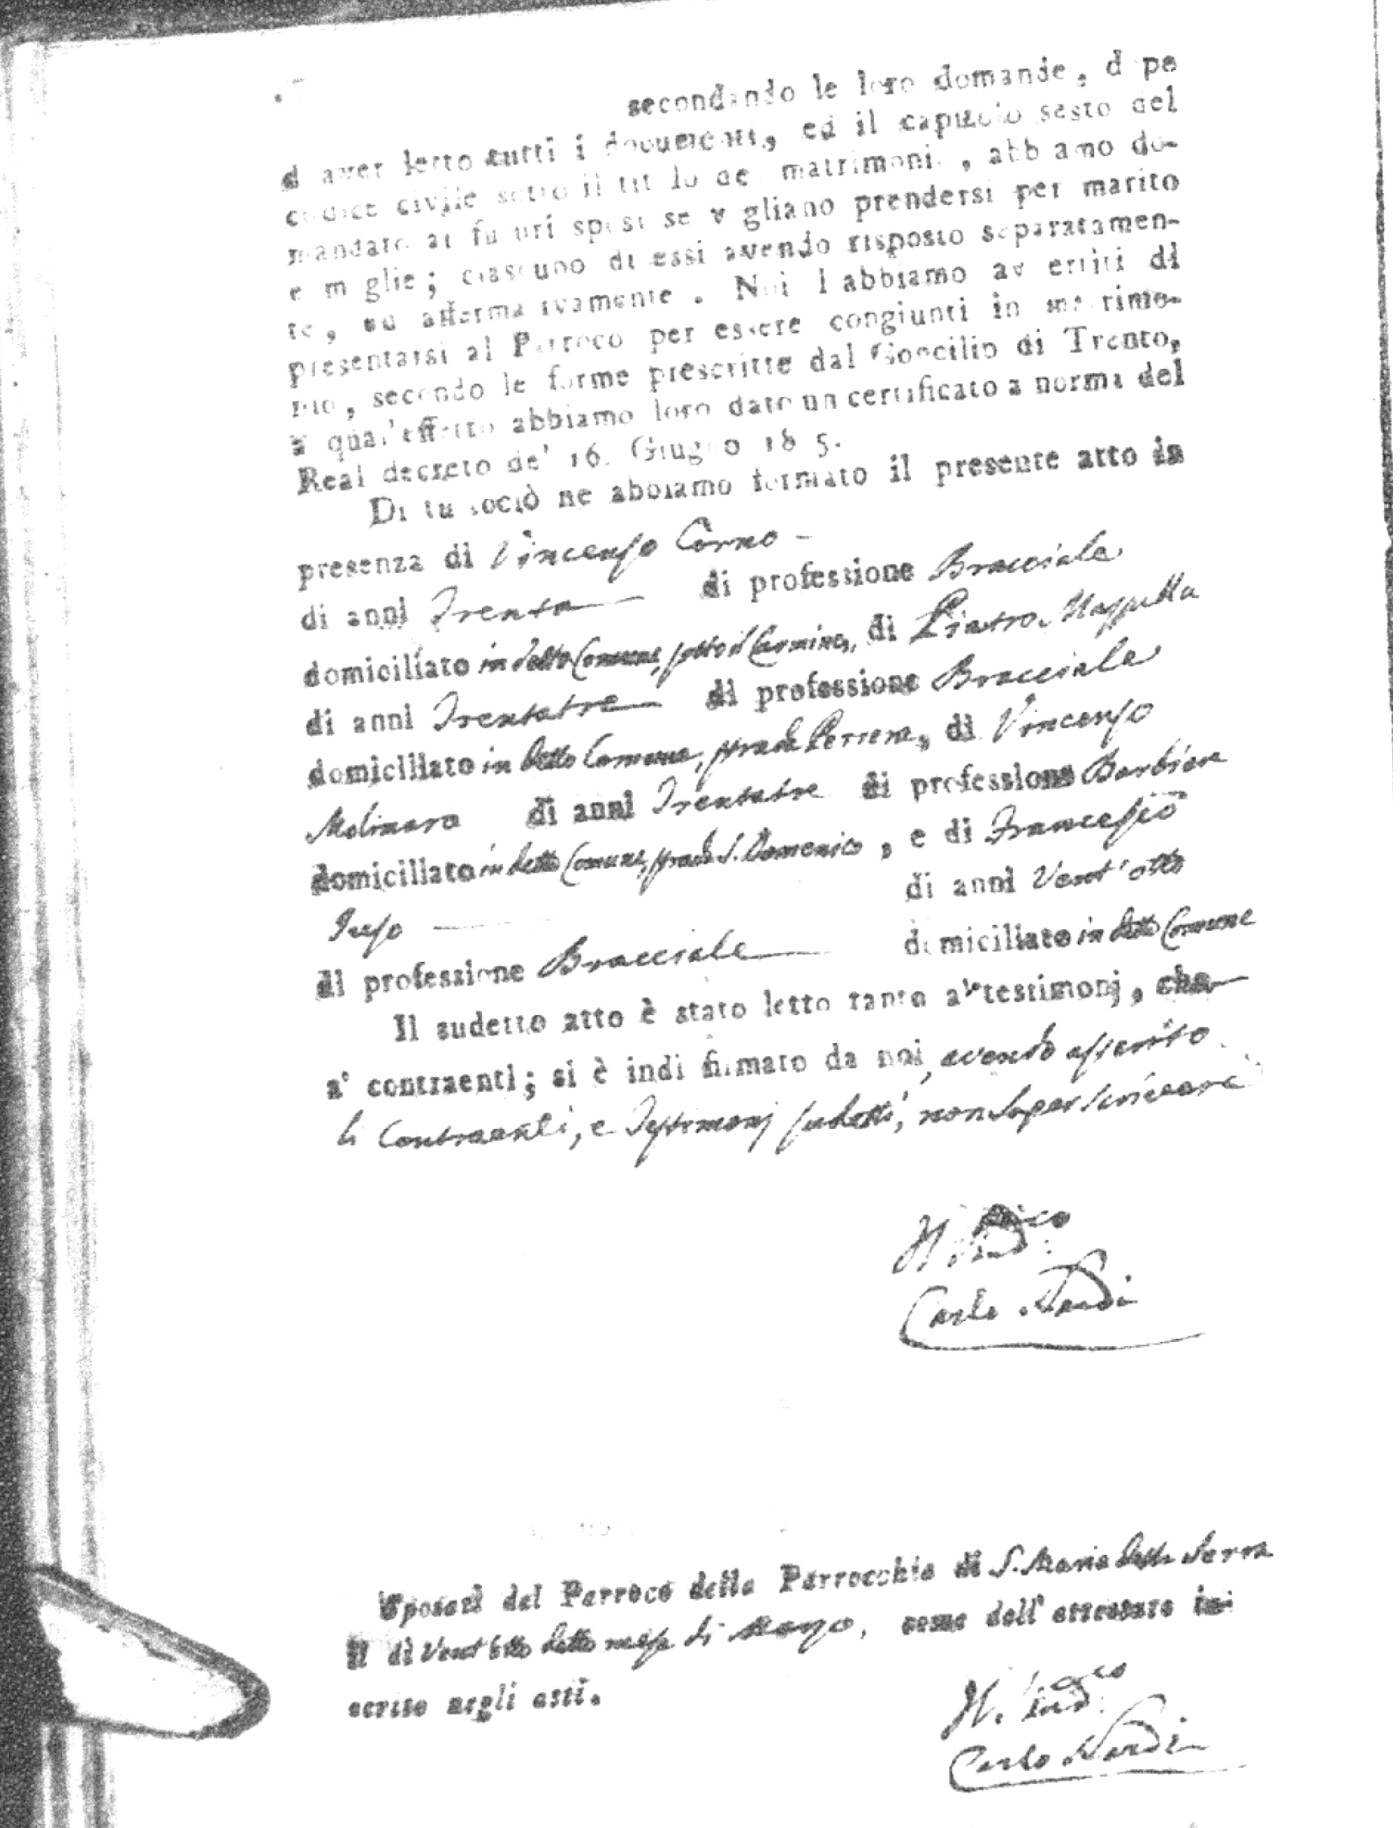 secondando le loro domande, dopo
d'aver letto tutti i documenti, ed il capitolo sesto del
codice civile sotto il titolo del matrimonio, abbiamo do-
mandato ai futuri sposi se vogliano prendersi per marito
e moglie; ciascuno di essi avendo risposto separatamen-
te, ed affermativamente. Noi l'abbiamo avertiti di
presentarsi al Parroco per essere congiunti in matrimo-
nio, secondo le forme prescritte dal Concilio di Trento,
a qual'effetto abbiamo loro dato un certificato a norma del
Real decreto de' 16. Giugno 1815.
Di tuttociò ne abbiamo formato il presente atto in
presenza di Vincenzo Corno -
di anni Trenta di professione Bracciale
domiciliato in detto Comune, sotto il Carmine, di Pietro
di anni Trentatre di professione Bracciale
domiciliato in detto Comune, strada, di Vincenzo
Molinaro di anni Trentatre di professione Barbiere
domiciliato in detto Comune, strada S. Domenico, e di Francesco
di anni Vent'otto
di professione Bracciale domiciliato in detto Comune
Il sudetto atto è stato letto tanto a' testimonj, che
a' contraenti; si è indi firmato da noi, avendo asserito
li Contraenti, e Testimonj sudetti, non saper scrivere
Carlo Nardi
Sposati dal Parroco della Parrocchia di S. Maria della Serra
il dì Vent'otto detto mese di Marzo, come dall' attestato in-
scritto negli atti.
Carlo Nardi